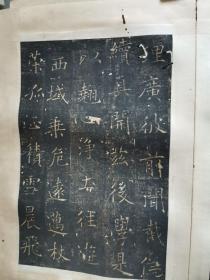 理廣彼前聞截偽
續真開茲後學是
以翹心淨土往遊
西域乘危遠邁杖
策孤征積雪晨飛